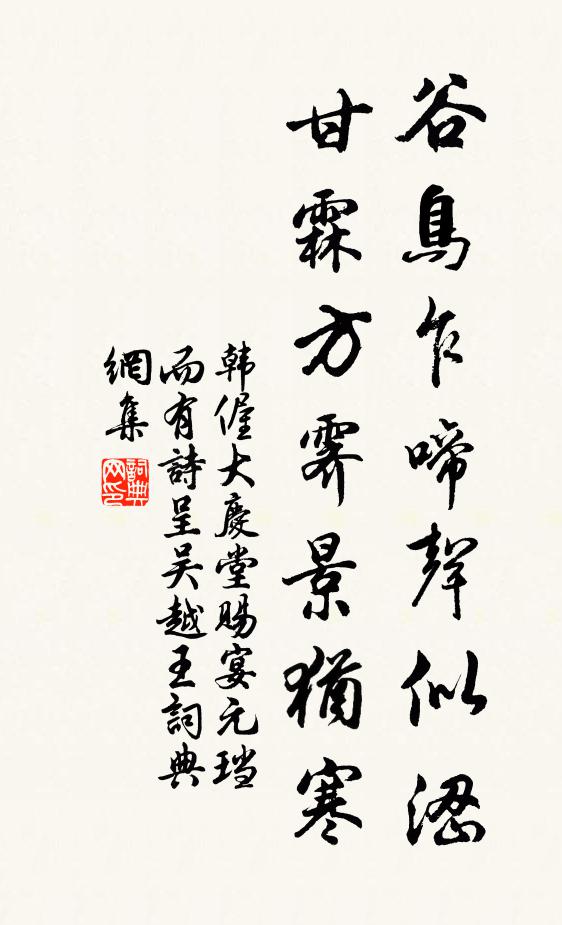 谷鳥乍啼聲似澀
甘霖方霽景猶寒
韩偓大慶堂賜宴元璫
而有詩呈吴越王詞典
網集
詞典网印